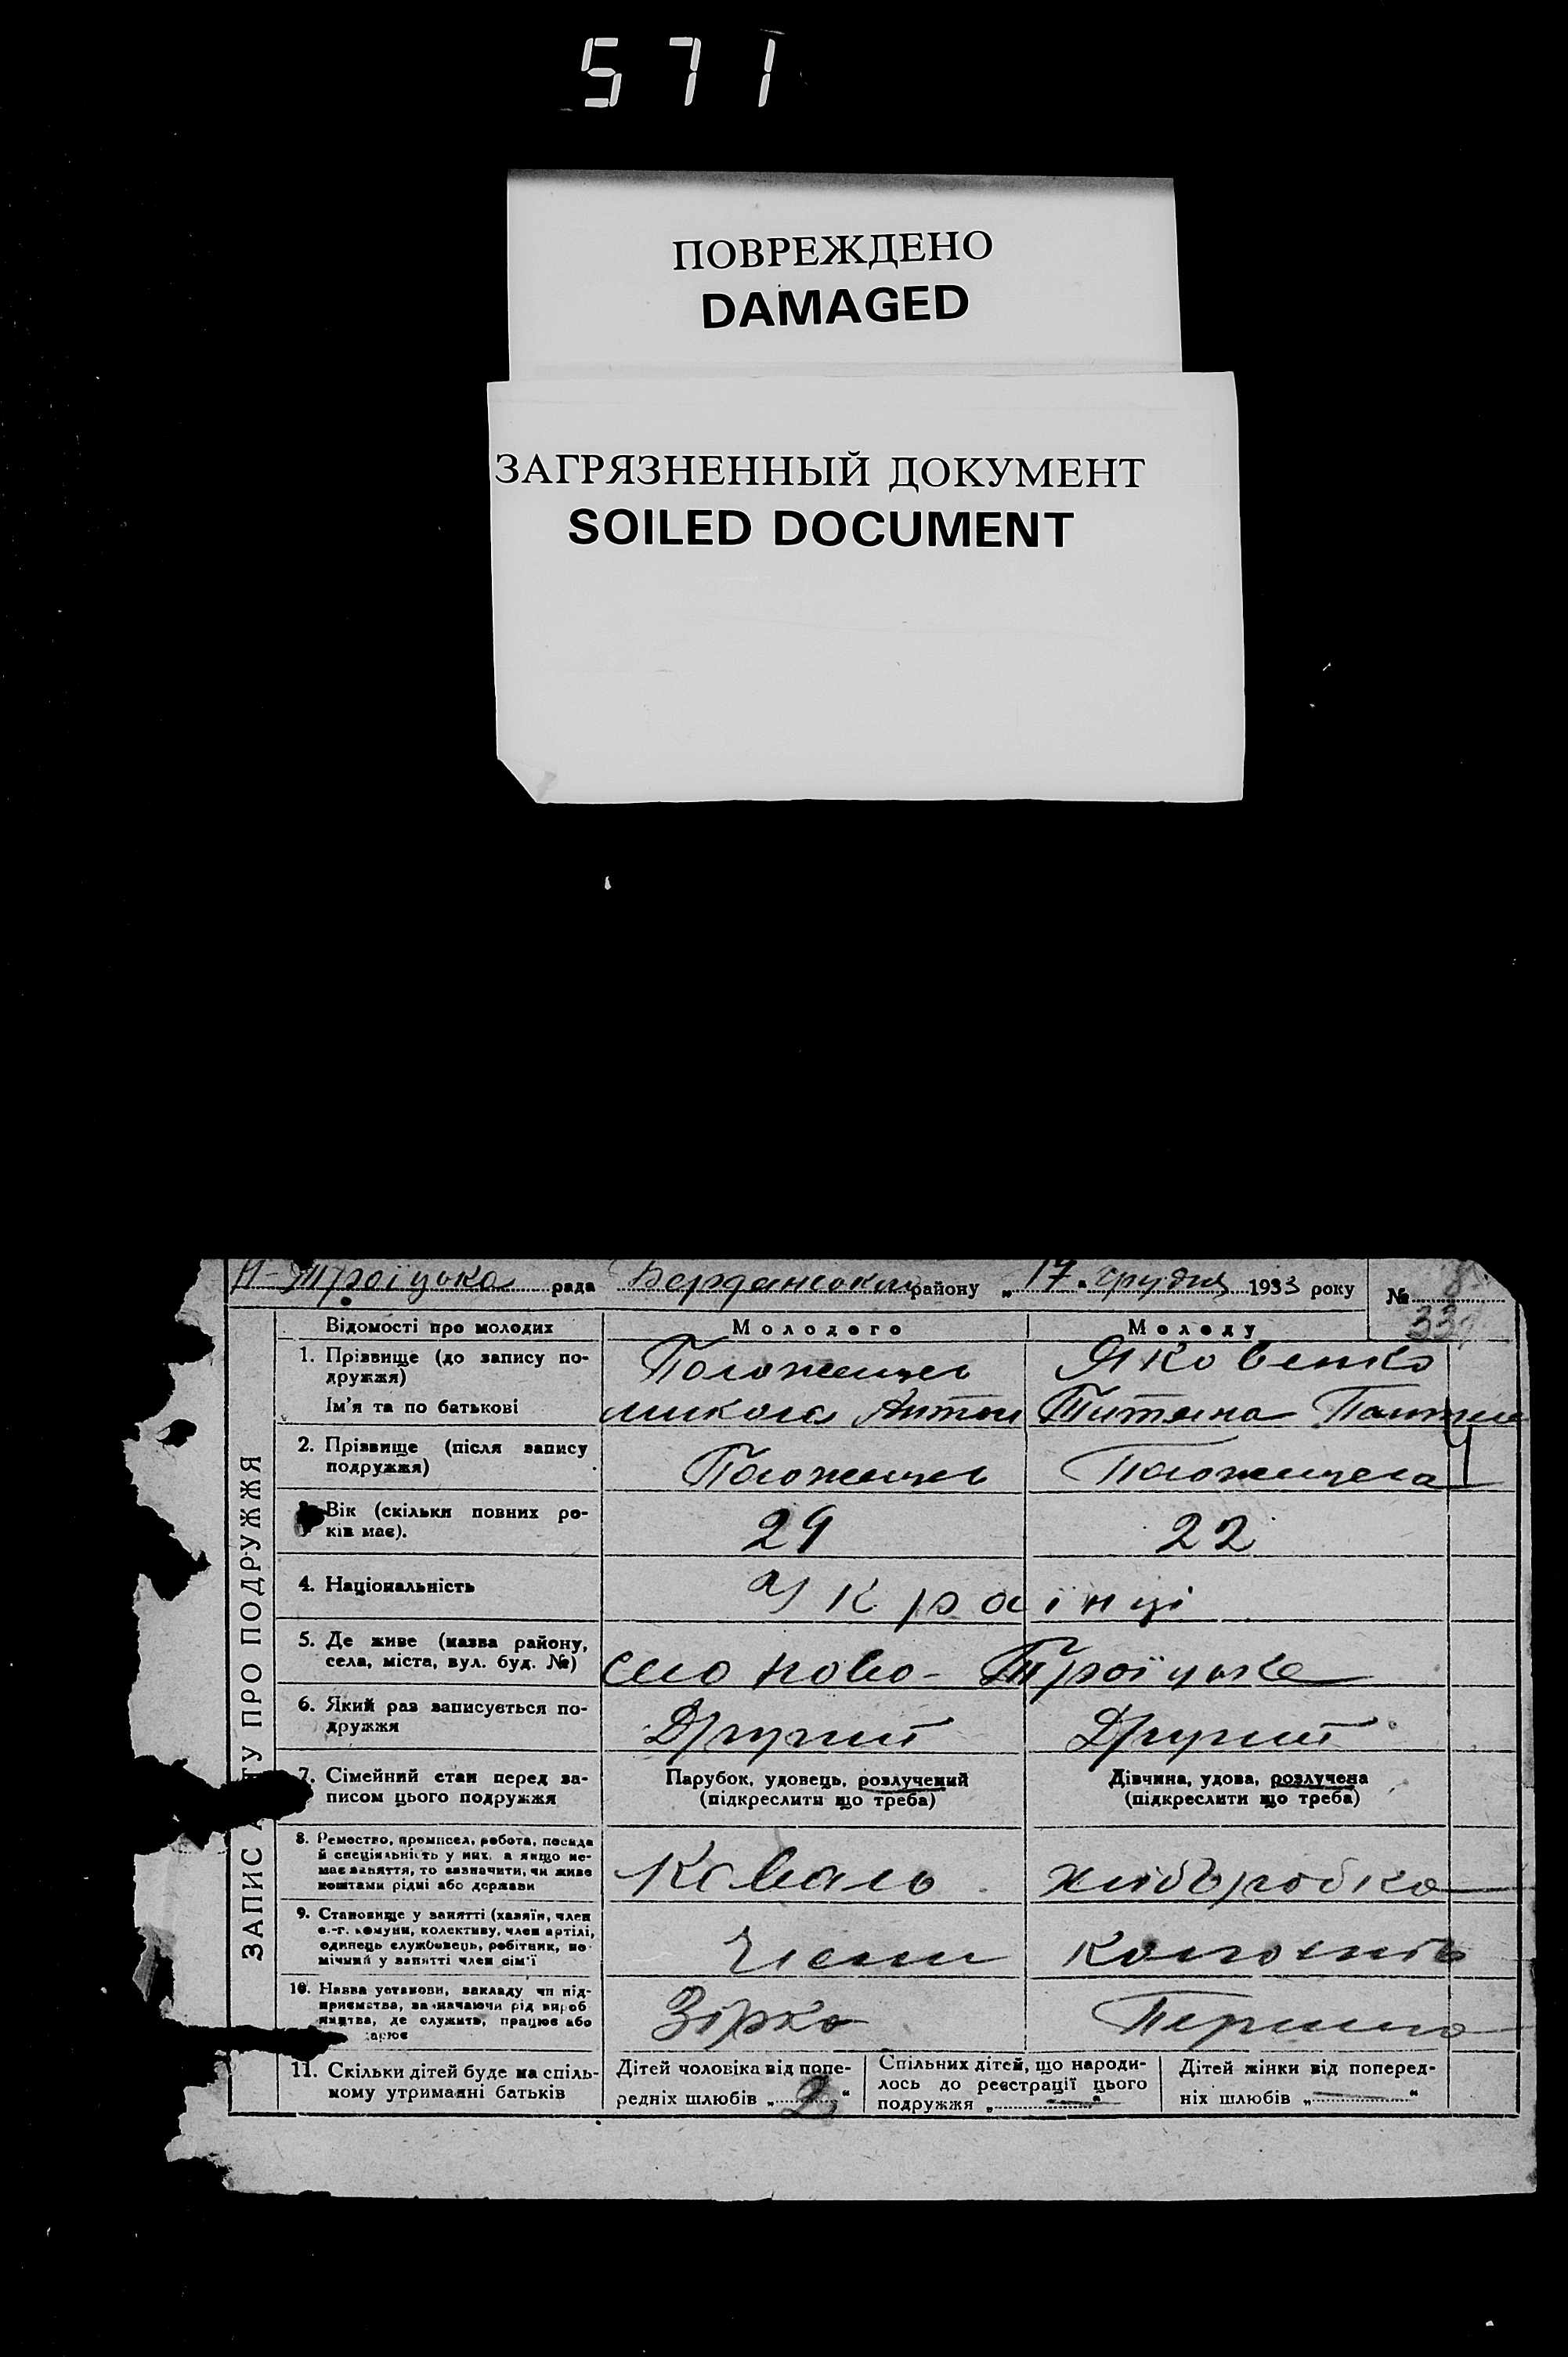 571
ПОВРЕЖДЕНО
DAMAGED
ЗАГРЯЗНЕННЫЙ ДОКУМЕНТ
SOILED DOCUMENT
Н-Троїцька рада Бердянського району „17“ грудня 1933 року № 8
33
ЗАПИС АКТУ ПРО ПОДРУЖЖЯ
Відомості про молодих Молодого Молоду
1. Прізвище (до запису по-
дружжя) Яковенко
Ім'я та по батькові микола Антон Титяна
2. Прізвище (після запису
подружжя)
Вік (скільки повних ро-
ків має). 29 22
4. Національність Українці
5. Де живе (назва району,
села, міста, вул. буд. №) село Ново-Троїцьке
6. Який раз записується по-
дружжя Другий Другий
7. Сімейний стан перед за-
писом цього подружжя
Парубок, удовець, розлучений
(підкреслити що треба)
Дівчина, удова, розлучена
(підкреслити що треба)
8. Ремество, промисел, робота, посада
й спеціяльність у них, а якщо не-
має заняття, то зазначити, чи живе
коштами рідні або держави
Коваль хліборобка
9. Становище у занятті (хазяїн, член
с.-г. комуни, колективу, член артілі,
одинець службовець, робітник, по-
мічний у занятті член сім'ї
Члени колгоспів
10. Назва установи, закладу чи під-
приємства, зазначаючи рід вироб
ництва, де служить, працює або
Зірка
11. Скільки дітей буде на спіль-
ному утриманні батьків
Дітей чоловіка від попе-
редніх шлюбів „2“
Спільних дітей, що народи-
лось до реєстрації цього
подружжя „—“
Дітей жінки від поперед-
ніх шлюбів „—“